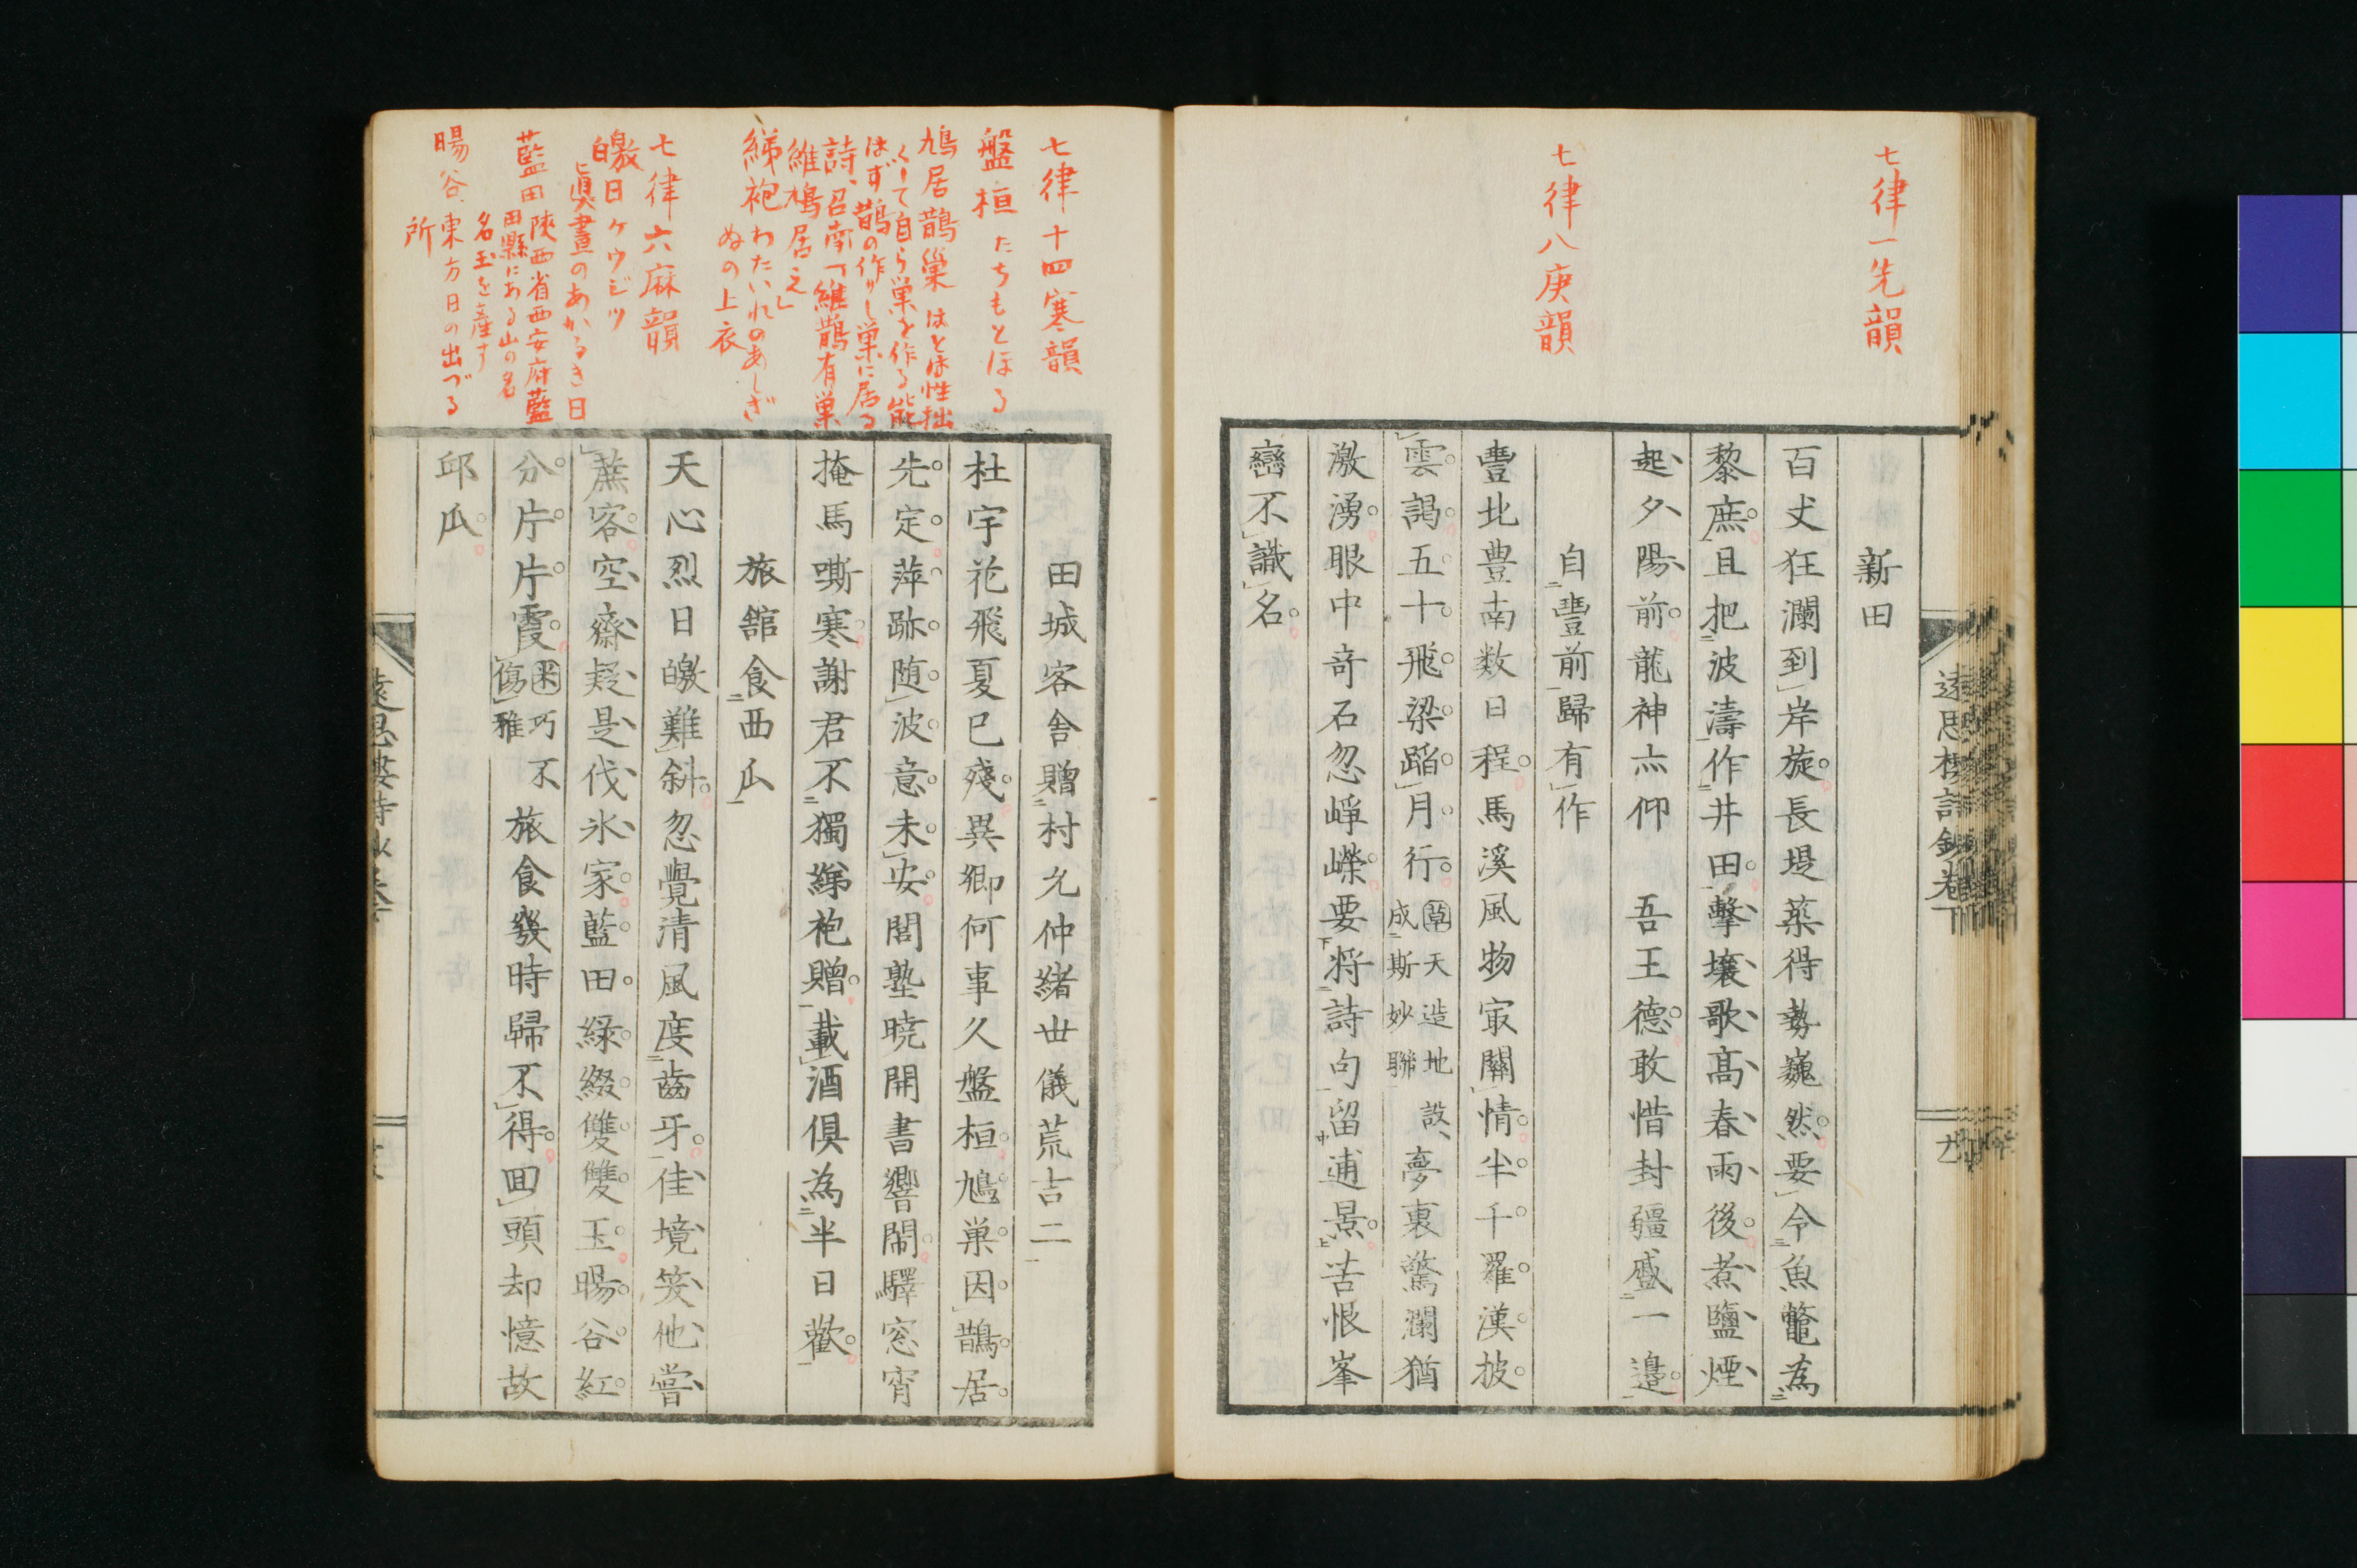 七律一先韻
七律八庚韻
新田
百丈狂瀾到岸旋長堤築得勢巍然要令魚鼈為
黎庶且把波濤作井田擊壤歌高春雨後煮鹽煙
起夕陽前龍神亦仰 吾王德敢惜封疆盛一邊
自豐前歸有作
豐北豊南数日程馬溪風物冣關情半千羅漢披
雲謁五十飛梁蹈月行
天造地設
成斯妙聯
夢裏驚瀾猶
激湧眼中奇石忽崢嶸要將詩句留逋景苦恨峯
巒不識名
七律十四寒韻
盤桓 たちもとほる
鳩居鵲巢 はとは性拙
くして自ら巣を作る能
はず鵲の作りし巣に居る
詩、召南「維鵲有巣
維鳩居之」
綈袍 わたいれのあしぎ
ぬの上衣
七律六麻韻
皦日 ケウジツ
眞晝のあかるき日
藍田 陝西省西安府藍
田縣にある山の名
名玉を産す
暘谷 東方日の出づる
所
田城客舎贈村允仲緒世儀荒吉二
杜宇花飛夏已殘異鄉何事久盤桓鳩巣因鵲居
先定萍跡随波意未安閭塾曉開書響鬧驛窓宵
掩馬嘶寒謝君不獨綈袍贈載酒俱為半日歡
旅舘食西瓜
天心烈日皦難斜忽覺清風度齒牙佳境笑他嘗
蔗客空齋疑是伐氷家藍田緑綴雙雙玉暘谷紅
分片片霞
巧不
傷雅
旅食發時歸不得囬頭却憶故
邱瓜
遠思樓詩鈔卷下